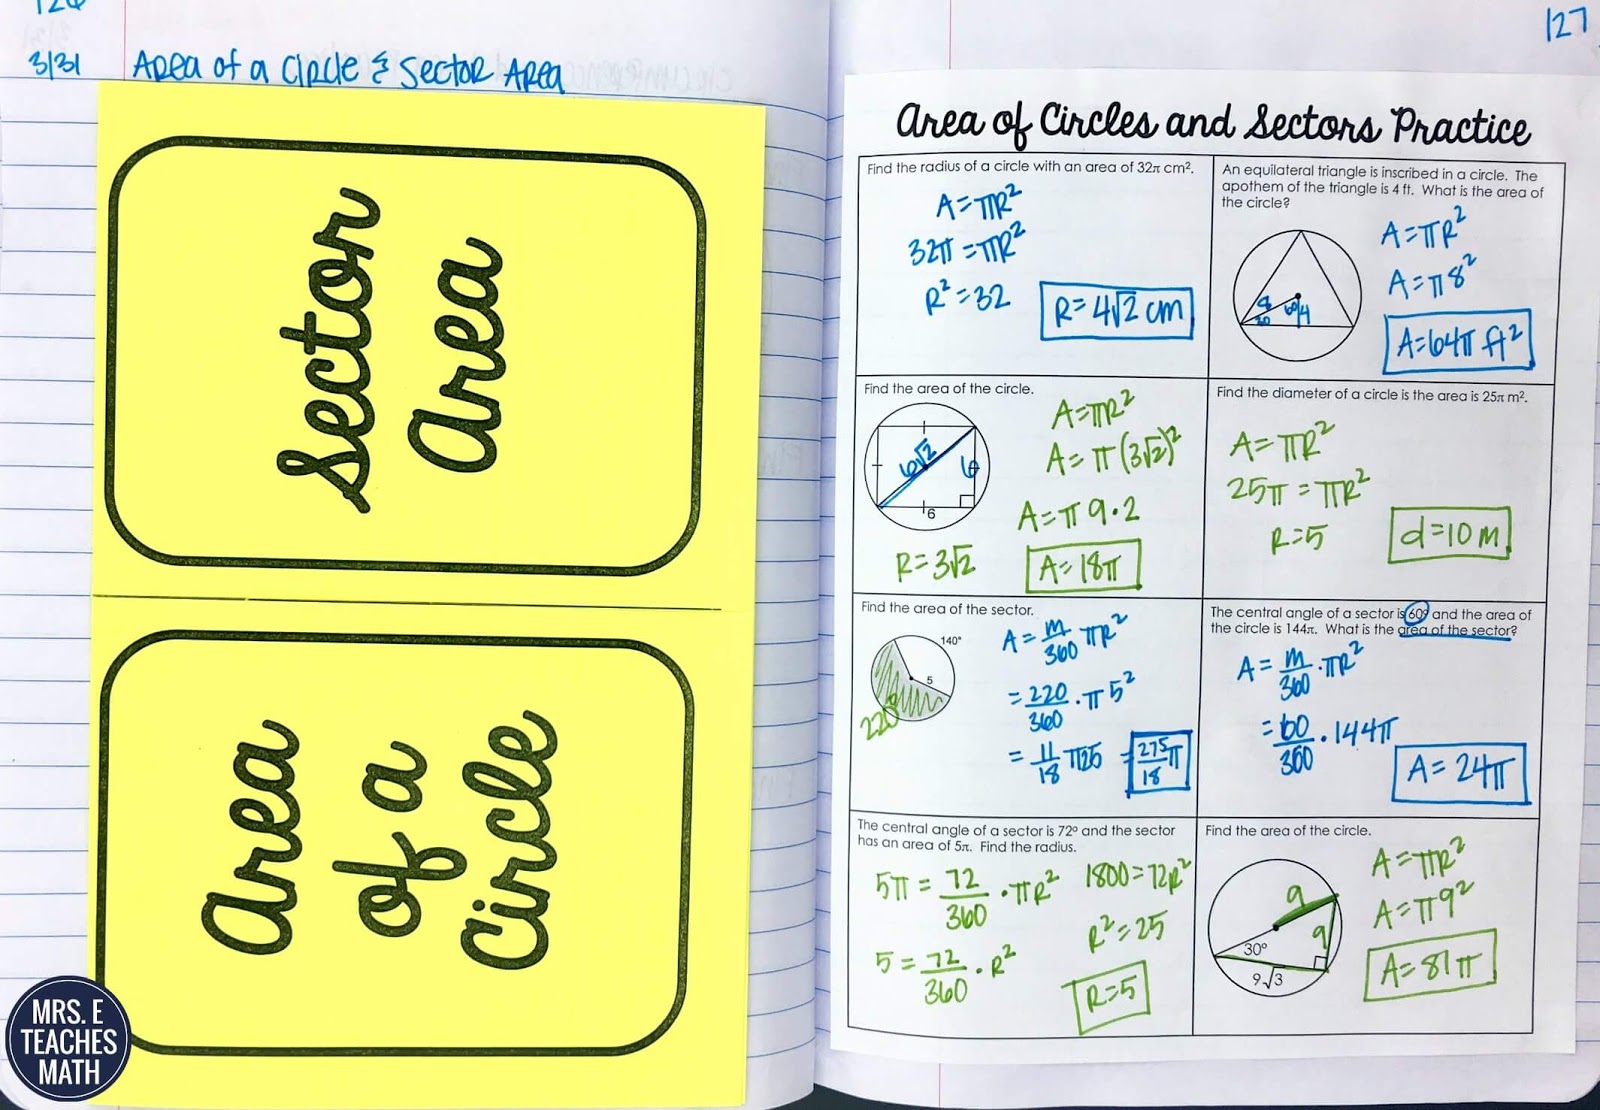 126
3/31 Area of a Circle & Sector Area
Sector
Area
Area
of a
Circle
MRS. E
TEACHES
MATH
127
Area of Circles and Sectors Practice
Find the radius of a circle with an area of 32π cm².
A=πR²
32π=πR²
R²=32
R=4√2 cm
An equilateral triangle is inscribed in a circle. The
apothem of the triangle is 4 ft. What is the area of
the circle?
8
30
60
4
A=πR²
A=π8²
A=64π ft²
Find the area of the circle.
6√2
6
6
A=πR²
A=π(3√2)²
A=π9·2
R=3√2
A=18π
Find the diameter of a circle is the area is 25π m².
A=πR²
25π=πR²
R=5
d=10m
Find the area of the sector.
140°
5
220
A=m/360 πR²
=220/360·π5²
=11/18 π25 =275/18 π
The central angle of a sector is 60º and the area of
the circle is 144π. What is the area of the sector?
A=m/360·πR²
=60/360·144π
A=24π
The central angle of a sector is 72º and the sector
has an area of 5π. Find the radius.
5π=72/360·πR²
5=72/360·R²
1800=72R²
R²=25
R=5
Find the area of the circle.
9
9
30°
9√3
A=πR²
A=π9²
A=81π